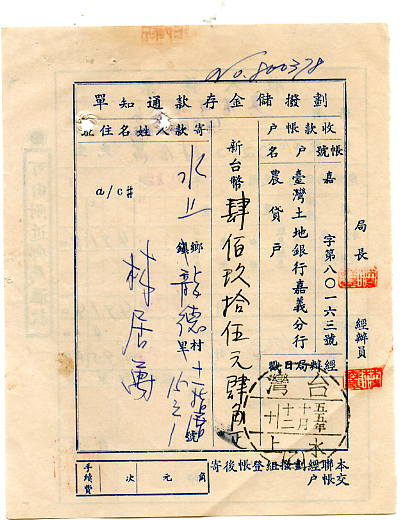 No. 800378
劃撥儲金存款通知單
收款帳戶
帳號
戶名
嘉
字第八〇一六三號
臺灣土地銀行嘉義分行
農貸戶
經辦局日戳
新台幣肆佰玖拾伍元肆角正
寄款人姓名住號
水上
鄉鎮
龍德
村里
號
a/c#
林居萬
局長
經辦員
台灣
五五年
十月
十二
水上
手續費
次
元
角
本聯經劃撥組登帳後寄交帳戶